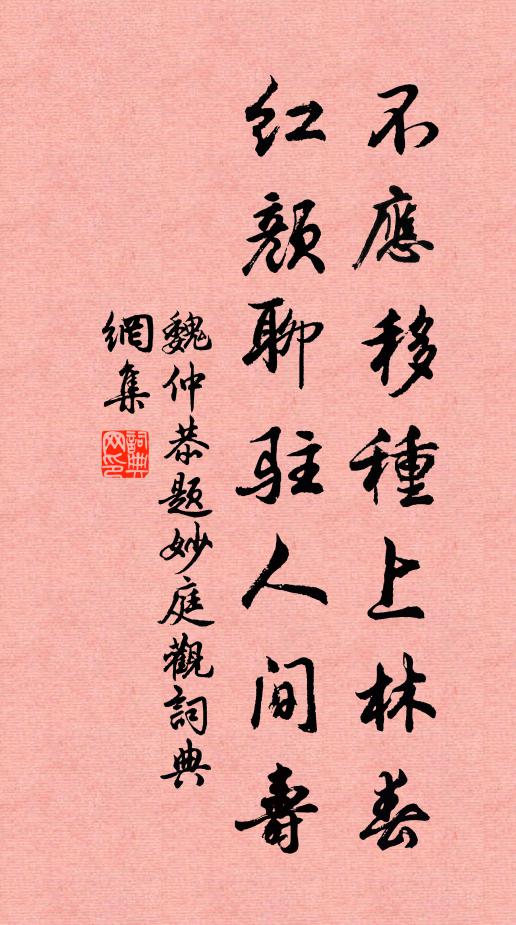 不應移種上林春
紅顏聊駐人間壽
魏仲恭題妙庭觀詞典
網集
詞典網印